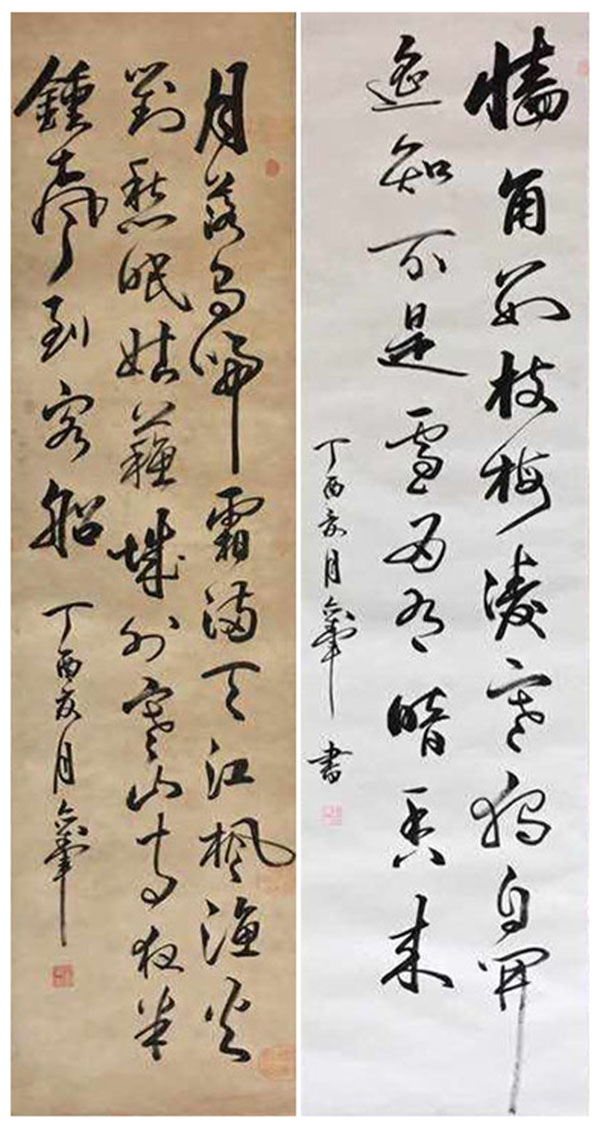 墻角數枝梅凌寒獨自開
遙知不是雪為有暗香來
丁酉亥月書
月落烏啼霜滿天江楓漁火
對愁眠姑蘇城外寒山寺夜半
鍾聲到客船 丁酉亥月